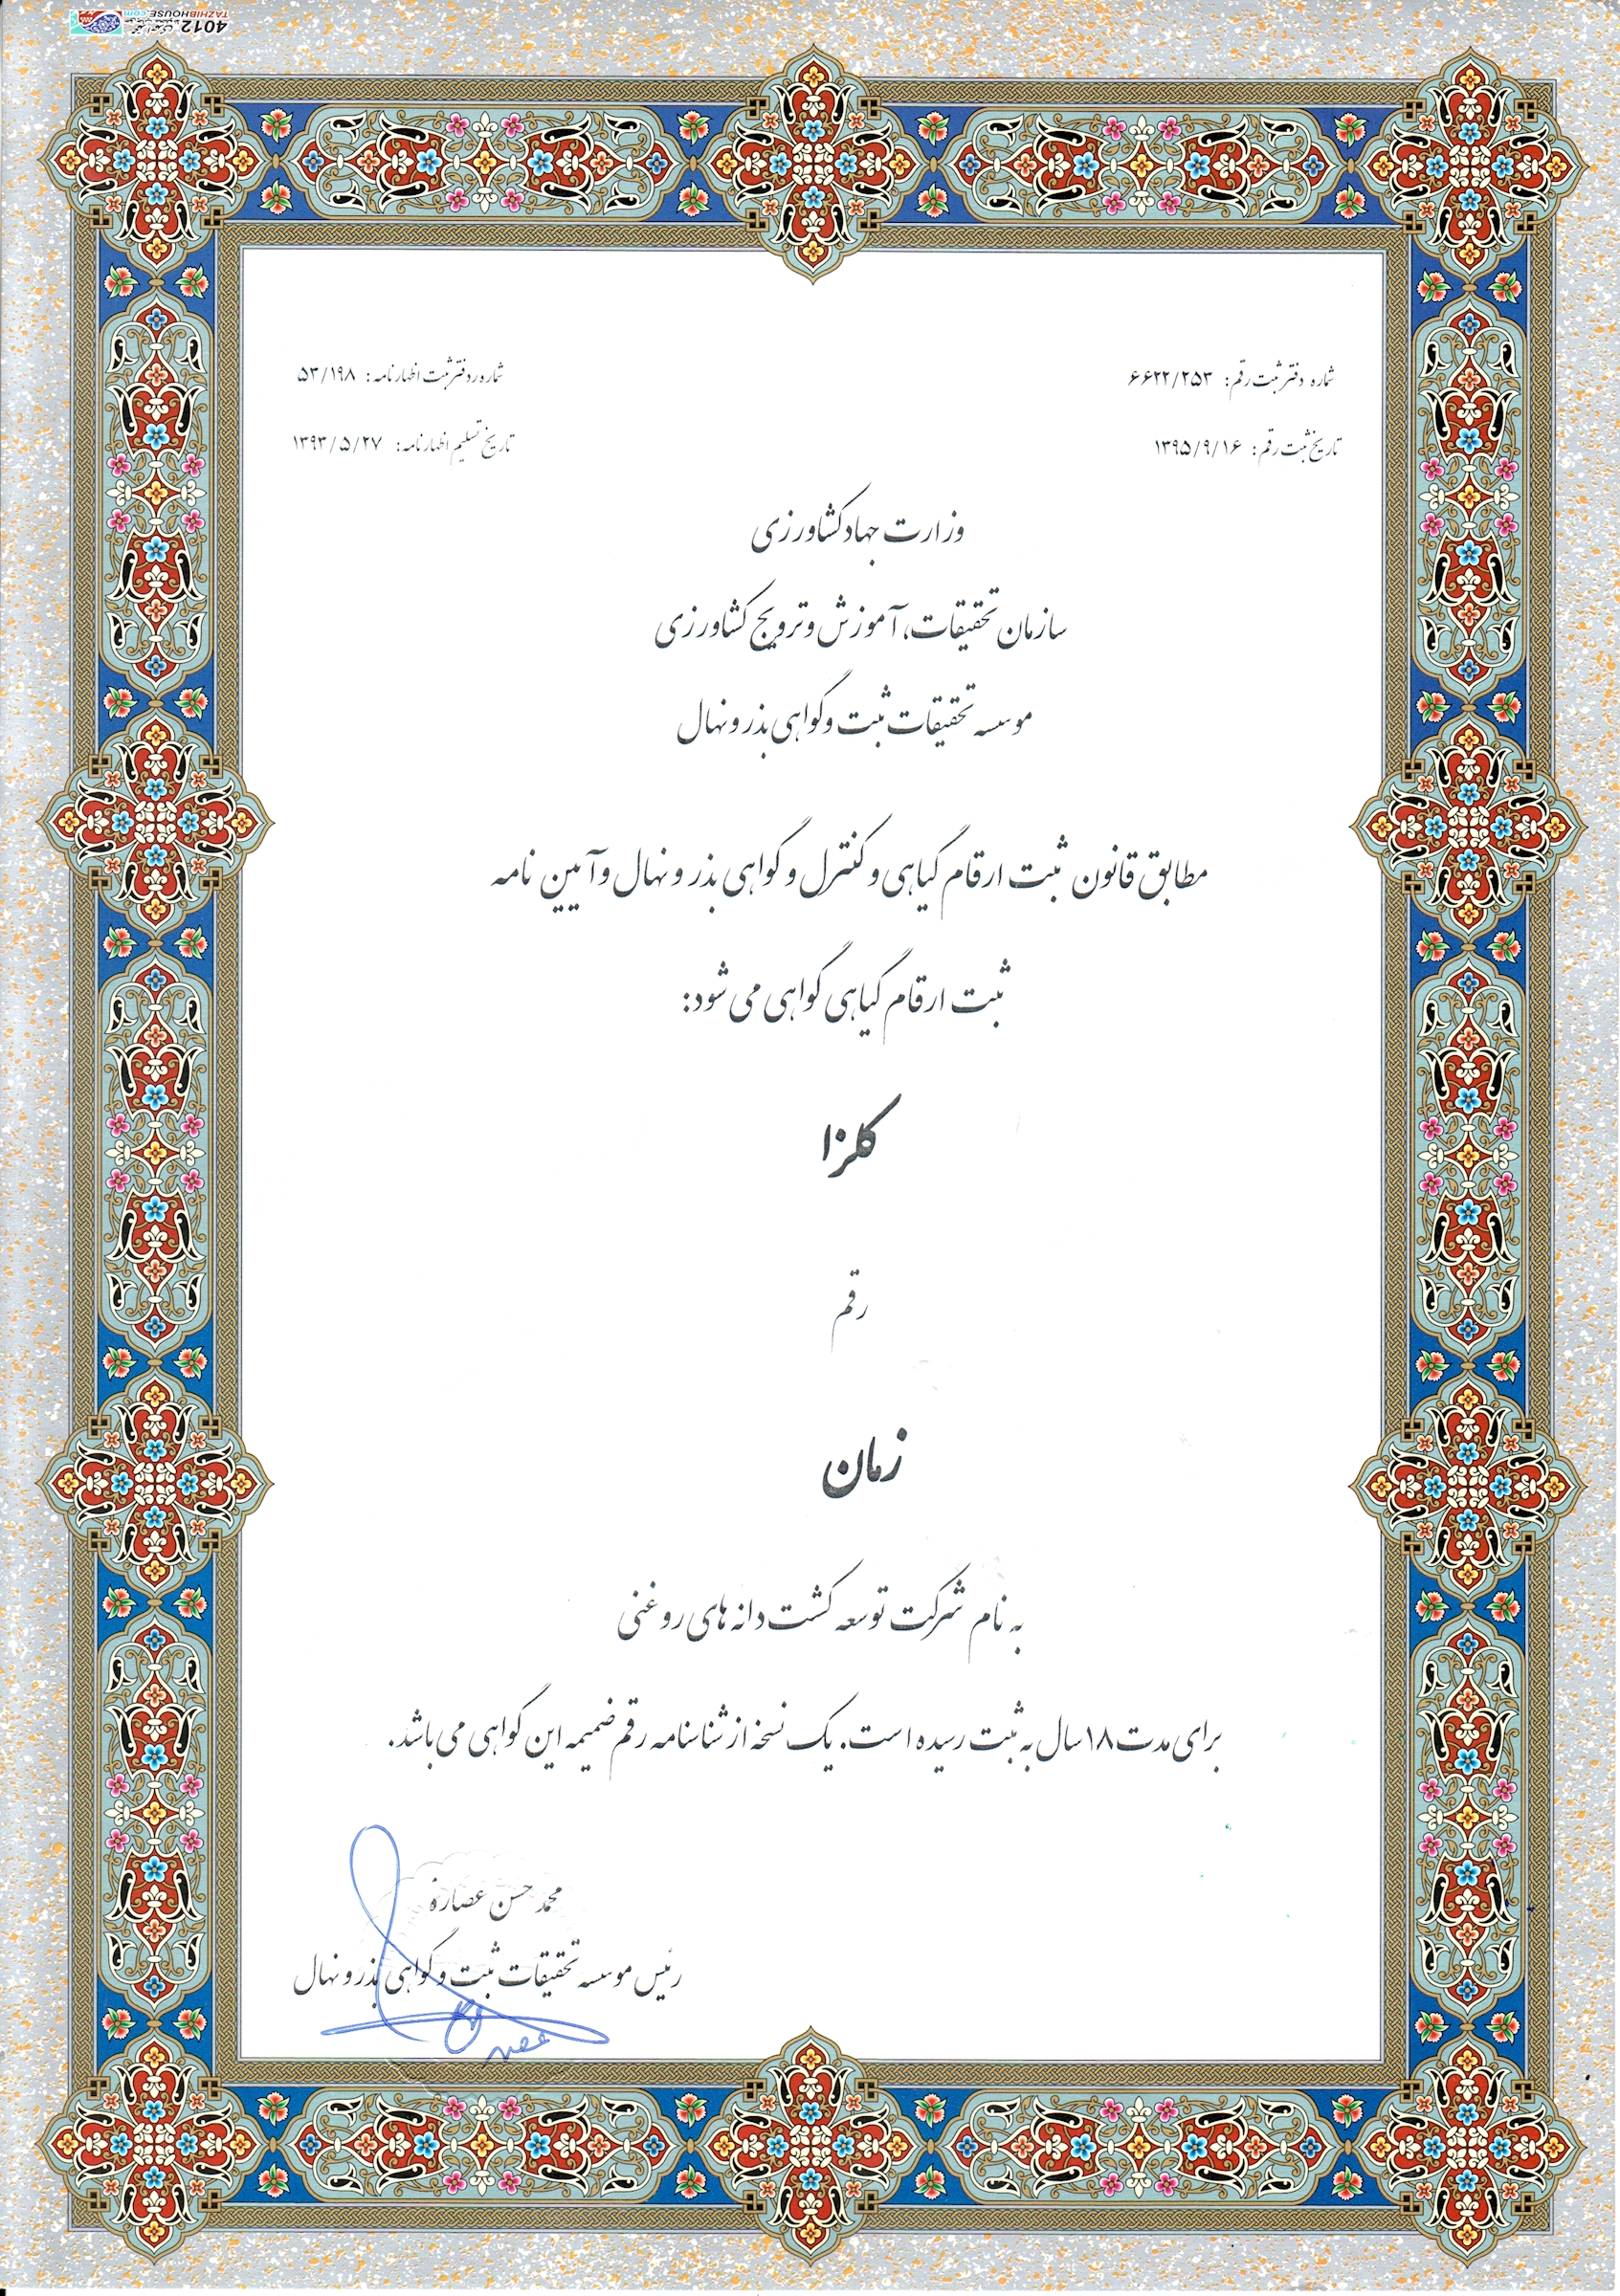 شماره دفتر ثبت رقم: ۶۶۲۲/۲۵۳
شماره ردفتر ثبت اظهارنامه: ۵۳/۱۹۸
تاریخ ثبت رقم: ۱۳۹۵/۹/۱۶
تاریخ تسلیم اظهارنامه: ۱۳۹۳/۵/۲۷
وزارت جهاد کشاورزی
سازمان تحقیقات، آموزش و ترویج کشاورزی
موسسه تحقیقات ثبت و گواهی بذر و نهال
مطابق قانون ثبت ارقام گیاهی و کنترل و گواهی بذر و نهال و آیین نامه
ثبت ارقام گیاهی گواهی می شود:
کلزا
رقم
زمان
به نام شرکت توسعه کشت دانه های روغنی
برای مدت ۱۸ سال به ثبت رسیده است. یک نسخه از شناسنامه رقم ضمیمه این گواهی می باشد.
محمد حسن عصاره
رئیس موسسه تحقیقات ثبت و گواهی بذر و نهال
4012
TAZHIBHOUSE.com